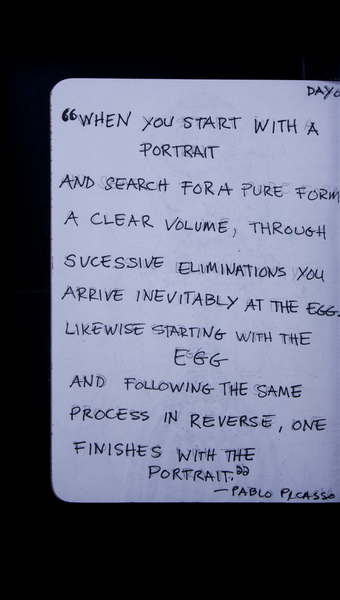 DAY
“WHEN YOU START WITH A
PORTRAIT
AND SEARCH FOR A PURE FORM
A CLEAR VOLUME, THROUGH
SUCESSIVE ELIMINATIONS YOU
ARRIVE INEVITABLY AT THE EGG.
LIKEWISE STARTING WITH THE
EGG
AND FOLLOWING THE SAME
PROCESS IN REVERSE, ONE
FINISHES WITH THE
PORTRAIT.”
—PABLO PICASSO